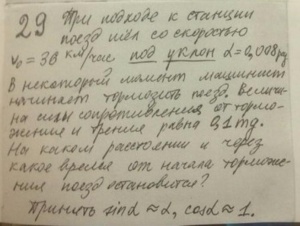 29 При подходе к станции
поезд шёл со скоростью
v₀ = 36 км/час под уклон α = 0,008 рад
В некоторый момент машинист
начинает тормозить поезд. Величи-
на силы сопротивления от тормо-
жения и трения равна 0,1 mg.
На каком расстоянии и через
какое время от начала торможе-
ния поезд остановится?
Принять sinα ≈ α, cosα ≈ 1.